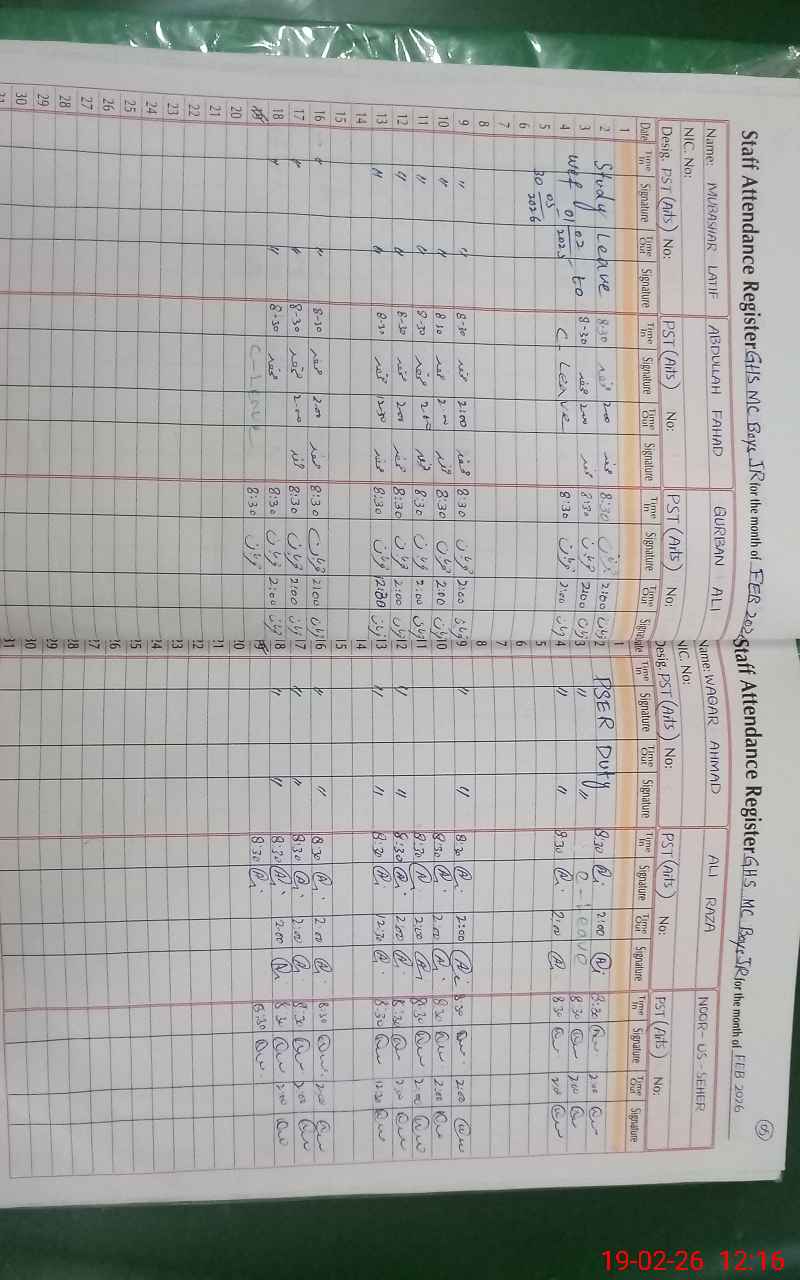 Staff Attendance Register GHS MC Boys JR for the month of FEB 202
Name: MUBASHAR LATIF ABDULLAH FAHAD QURBAN ALI
NIC. No:
Desig. PST (Arts) No: PST (Arts) No: PST (Arts) No:
Date Time In Signature Time Out Signature Time In Signature Time Out Signature Time In Signature Time Out Signature
1
2 Study Leave 8:30 2:00 8:30 2:00
3 wef 01/02/2025 to 8-30 2:00 8:30 2:00
4 C-Leave 8:30 2:00
5 30 03 2026
6
7
8
9 " " 8-30 2:00 8:30 2:00
10 " " 8:30 2:00 8:30 2:00
11 " " 8-30 2:00 8:30 2:00
12 " " 8-30 2:00 8:30 2:00
13 " " 8-30 12:30 8:30 12:30
14
15
16 " " 8-30 2:00 8:30 2:00
17 " " 8-30 2:00 8:30 2:00
18 " " 8-30 8:30 2:00
C-Leave 8:30
20
21
22
23
24
25
26
27
28
29
30
31
Staff Attendance Register GHS MC Boys JR for the month of FEB 2026
05
Name: WAQAR AHMAD ALI RAZA NOOR-US-SEHER
NIC. No:
Desig. PST (Arts) No: PST (Arts) No: PST (Arts) No:
Time In Signature Time Out Signature Time In Signature Time Out Signature Time In Signature Time Out Signature
1
2 PSER Duty 8:30 2:00 8:30 2:00
3 " " C-Leave 8:30 2:00
4 " " 8:30 2:00 8:30 2:00
5
6
7
8
9 " " 8:30 2:00 8:30 2:00
10 8:30 2:00 8:30 2:00
11 8:30 2:00 8:30 2:00
12 " " 8:30 2:00 8:30 2:00
13 " " 8:30 12:30 8:30 12:30
14
15
16 " " 8:30 2:00 8:30 2:00
17 " " 8:30 2:00 8:30 2:00
18 " " 8:30 2:00 8:30 2:00
8:30 8:30
20
21
22
23
24
25
26
27
28
29
30
31
19-02-26 12:16